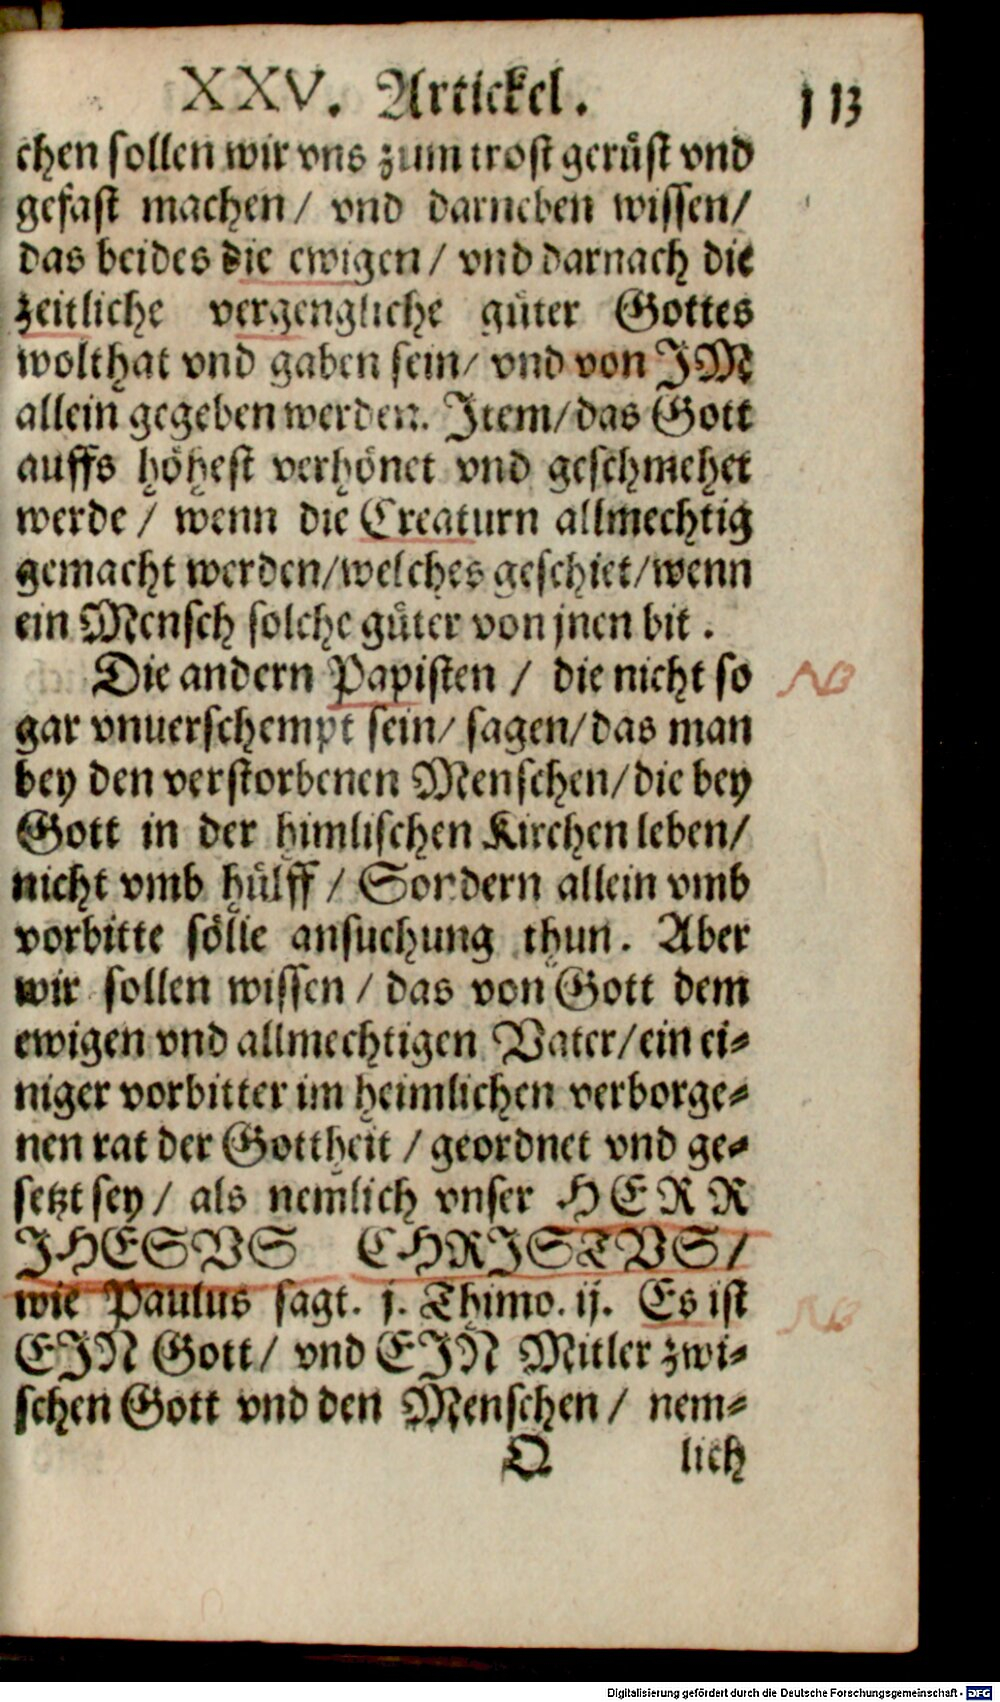 XXV. Artickel. 113
chen sollen wir vns zum trost gerůst vnd
gefast machen / vnd darneben wissen /
das beides die ewigen / vnd darnach die
zeitliche vergengliche gůter Gottes
wolthat vnd gaben sein / vnd von JM
allein gegeben werden. Jtem / das Gott
auffs höhest verhönet vnd geschmehet
werde / wenn die Creaturn allmechtig
gemacht werden / welches geschiet / wenn
ein Mensch solche gůter von jnen bit.
Die andern Papisten / die nicht so
NB
gar vnuerschempt sein / sagen / das man
bey den verstorbenen Menschen / die bey
Gott in der himlischen Kirchen leben /
nicht vmb hůlff / Sondern allein vmb
vorbitte sölle ansuchung thun. Aber
wir sollen wissen / das von Gott dem
ewigen vnd allmechtigen Vater / ein ei-
niger vorbitter im heimlichen verborge-
nen rat der Gottheit / geordnet vnd ge-
setzt sey / als nemlich vnser HERR
JHESVS CHRISTVS /
wie Paulus sagt. j. Thimo. ij. Es ist
NB
EJN Gott / vnd EJN Mitler zwi-
schen Gott vnd den Menschen / nem-
Q lich
Digitalisierung gefördert durch die Deutsche Forschungsgemeinschaft - DFG